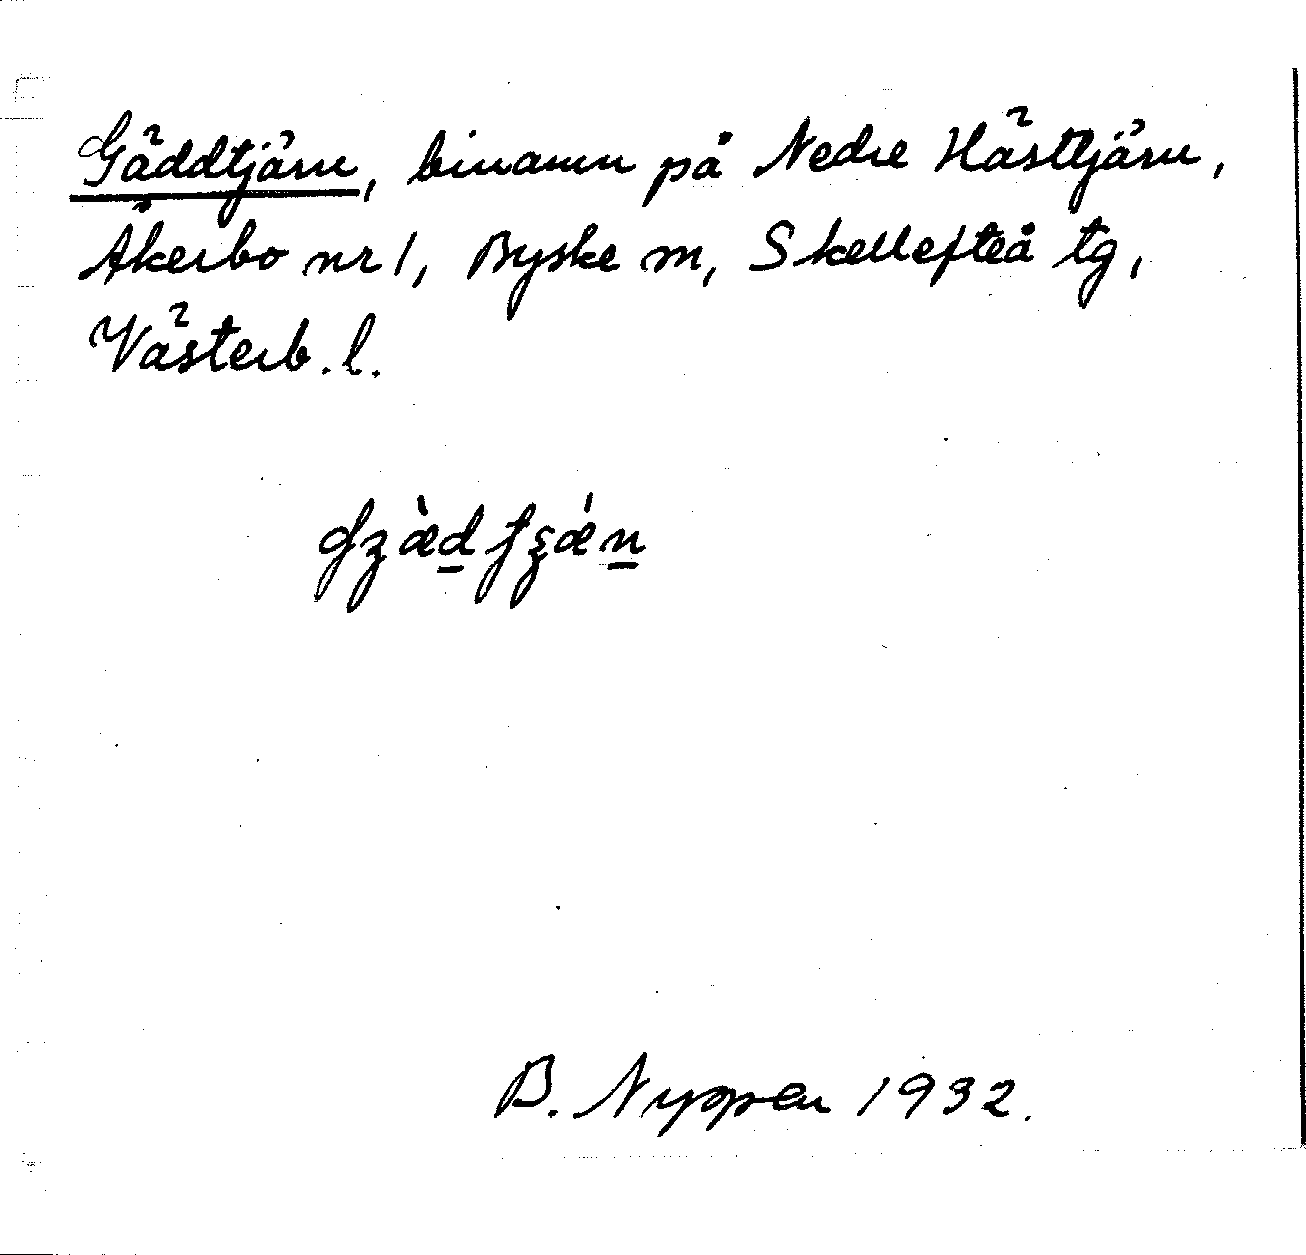 Gäddtjärn, binamn på Nedre Hästtjärn,
Åkerbo nr 1, Byske sn, Skellefteå tg,
Västerb. l.
B. Nyppen 1932.